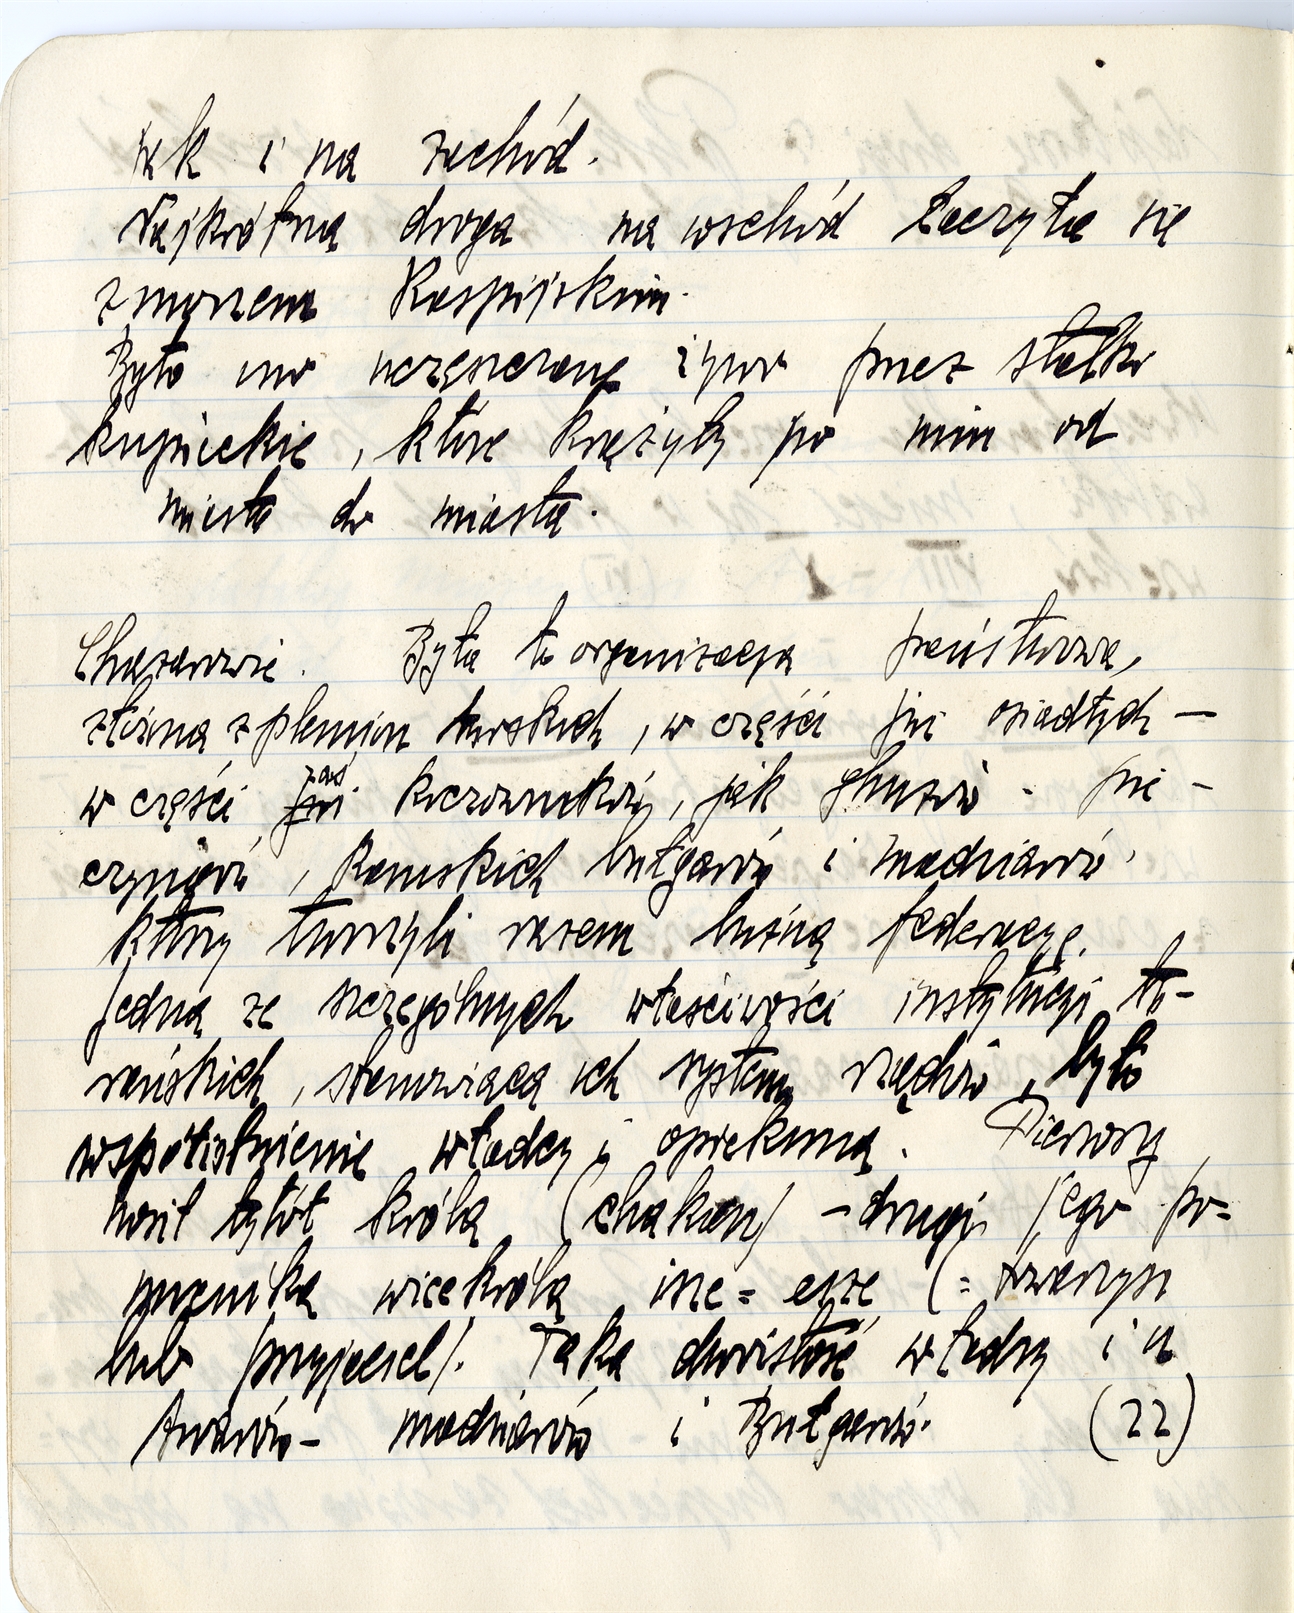 jak i na zachód.
Najkrótszą droga na wschód łączyła się
z morzem Kaspijskim.
Było ono uczęszczane żywo przez statki
kupieckie, które krążyły po nim od
miasta do miasta.
Chazarowie. Była to organizacja państwowa,
złożona z plemion turskich, w części już osiadłych —
w części zaś koczowników, jak Ghuzów - Pie-
czyngów, Kamskich bułgarów i madziarów.
którzy tworzyli razem luźną federację.
Jedną ze szczególnych właściwości instytucji tu-
rańskich, stanowiącą ich system rządów, było
współistnienie władcy i opiekuna. Pierwszy
nosił tytół króla (chakan) - drugi jego po-
mocnika wicekróla isze = (= towarzysz
lub przyjaciel). Taka dwoistość władzy i u
Awarów - madziarów i Bułgarów. (22)